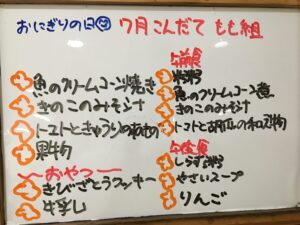 おにぎりの日 7月こんだて もも組
魚のクリームコーン焼き
きのこのみそ汁
トマトときゅうりのあえもの
果物
おやつ
きびざとうクッキー
牛乳
午前食
米粥
魚のクリームコーン煮
きのこのみそ汁
トマトと胡瓜の和え物
午後食
しらす粥
やさいスープ
りんご